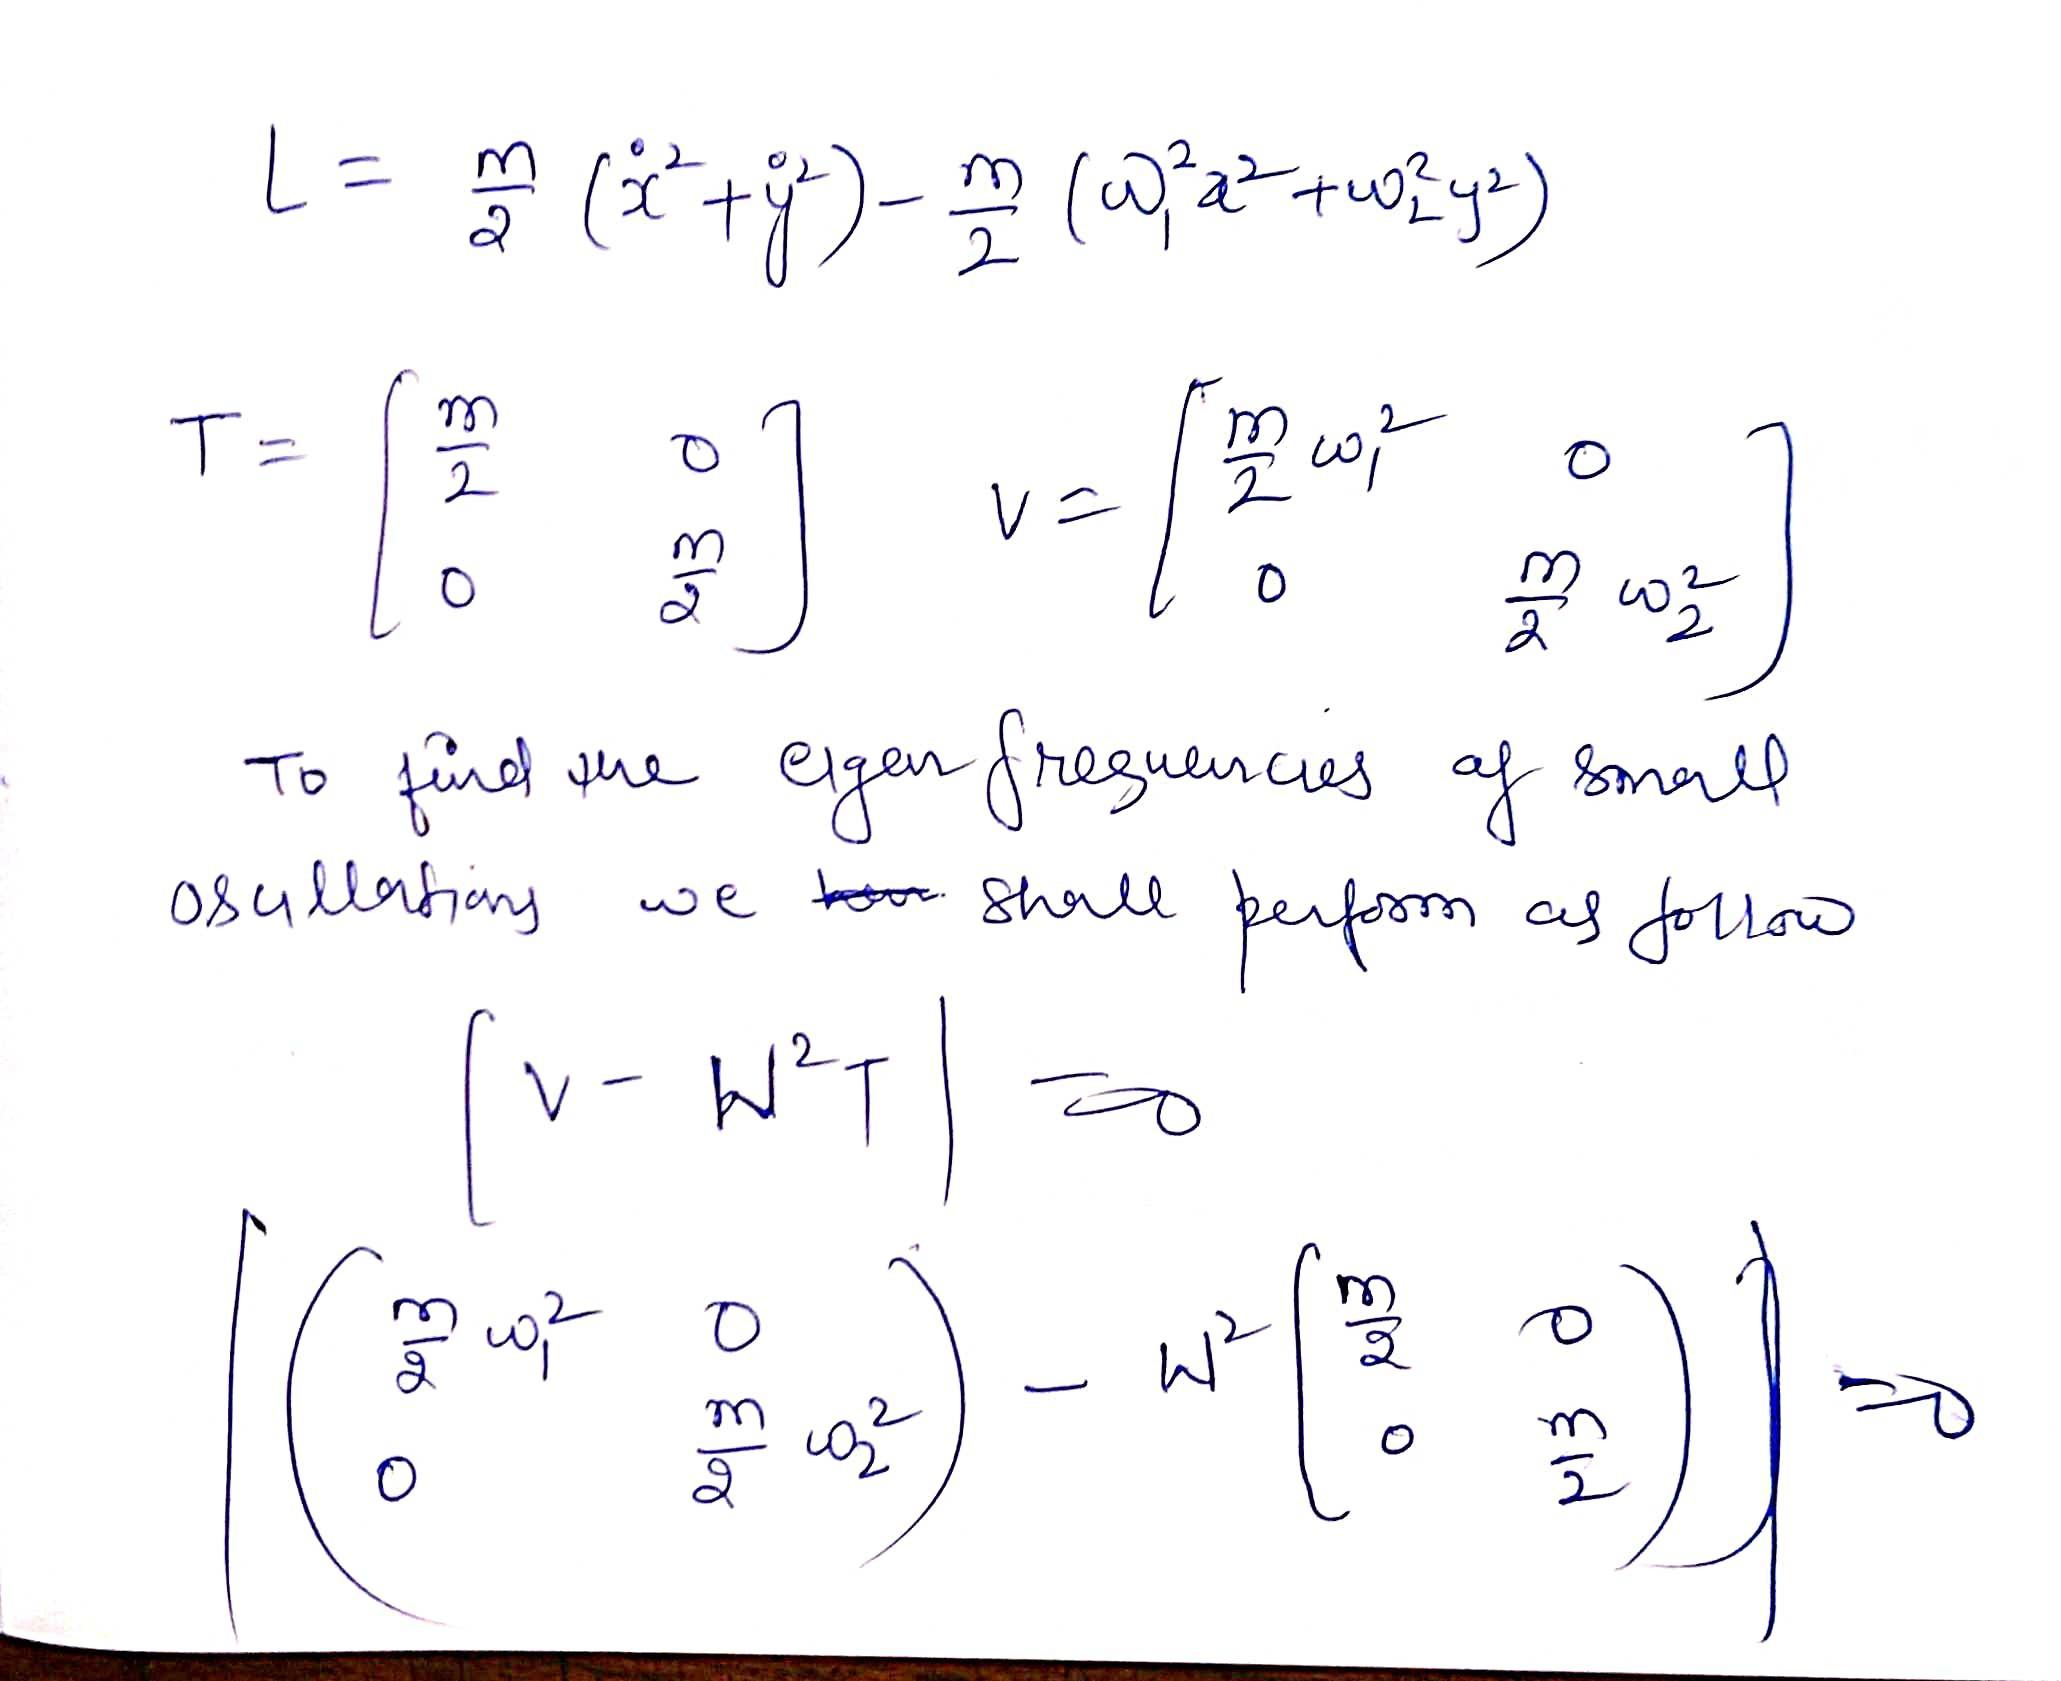 L = m/2 (ẋ² + ẏ²) - m/2 (ω₁² x² + ω₂² y²)
T = [ m/2 0 ; 0 m/2 ] V = [ m/2 ω₁² 0 ; 0 m/2 ω₂² ]
To find the eigen frequencies of small
oscillations we shall perform as follow
| V - W² T | = 0
| ( m/2 ω₁² 0 ; 0 m/2 ω₂² ) - W² ( m/2 0 ; 0 m/2 ) | = 0